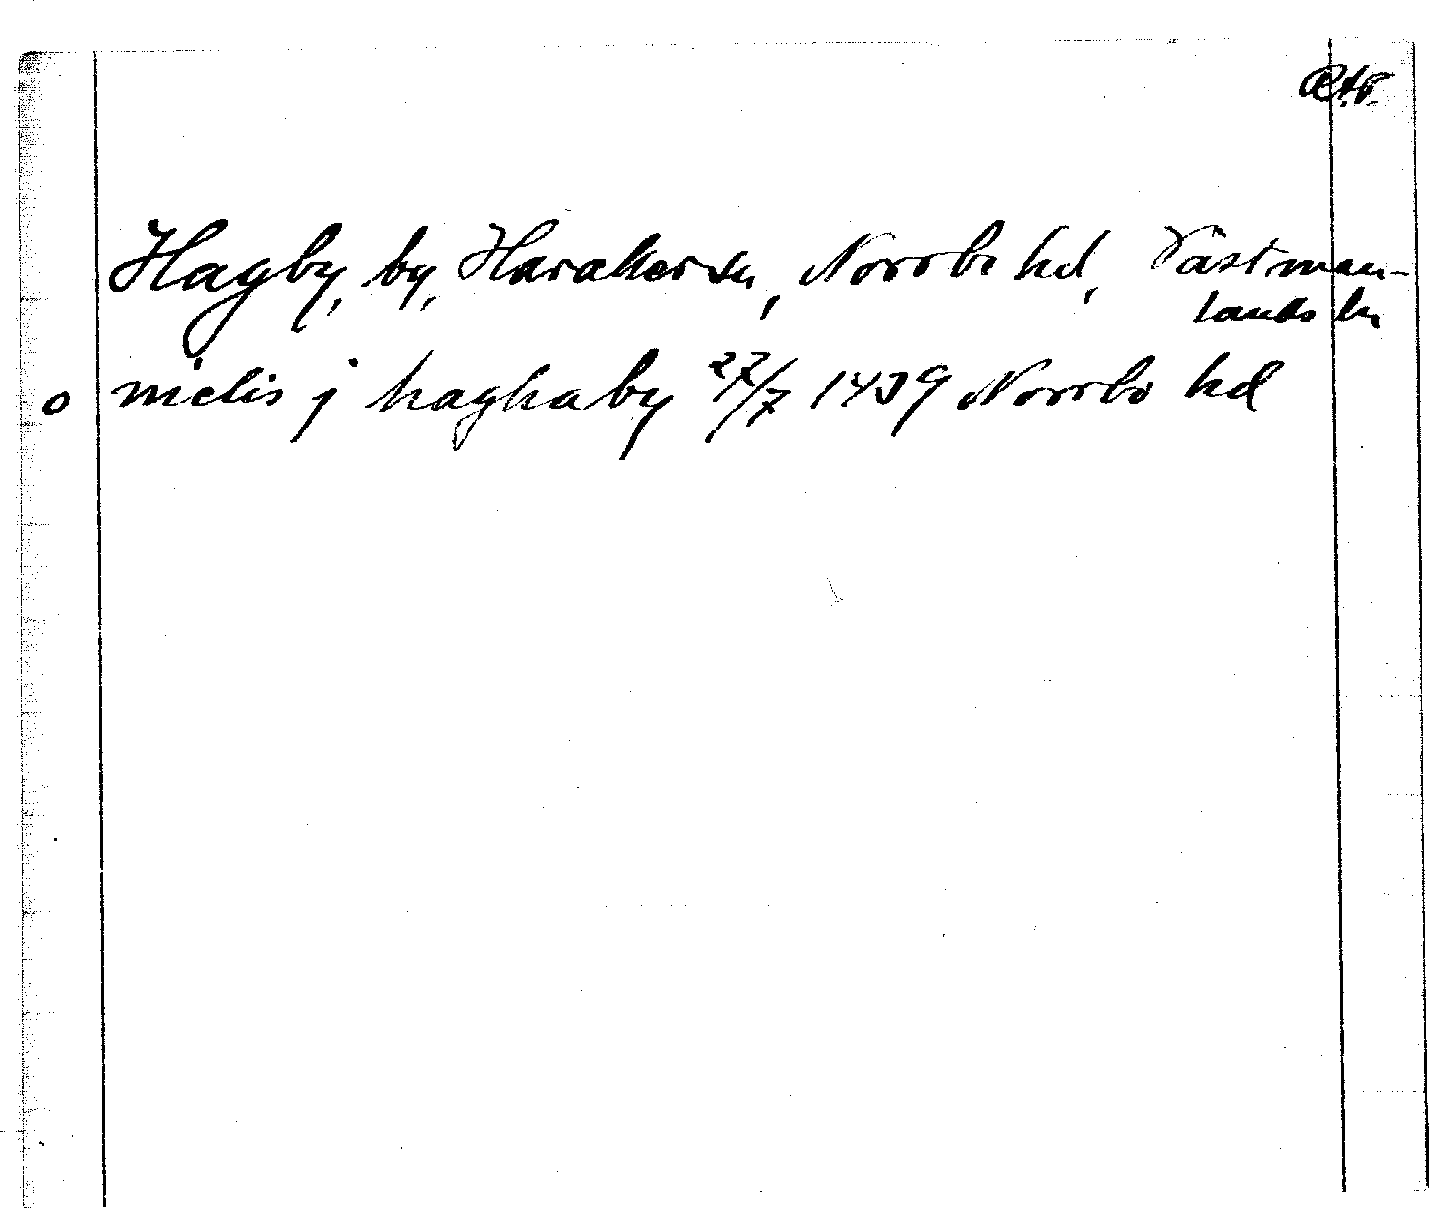 RAP.
Hagby, by, Harakers sn, Norrbo hd, Västman-
lands län
o nielis j haghaby 27/7 1439 Norrbo hd